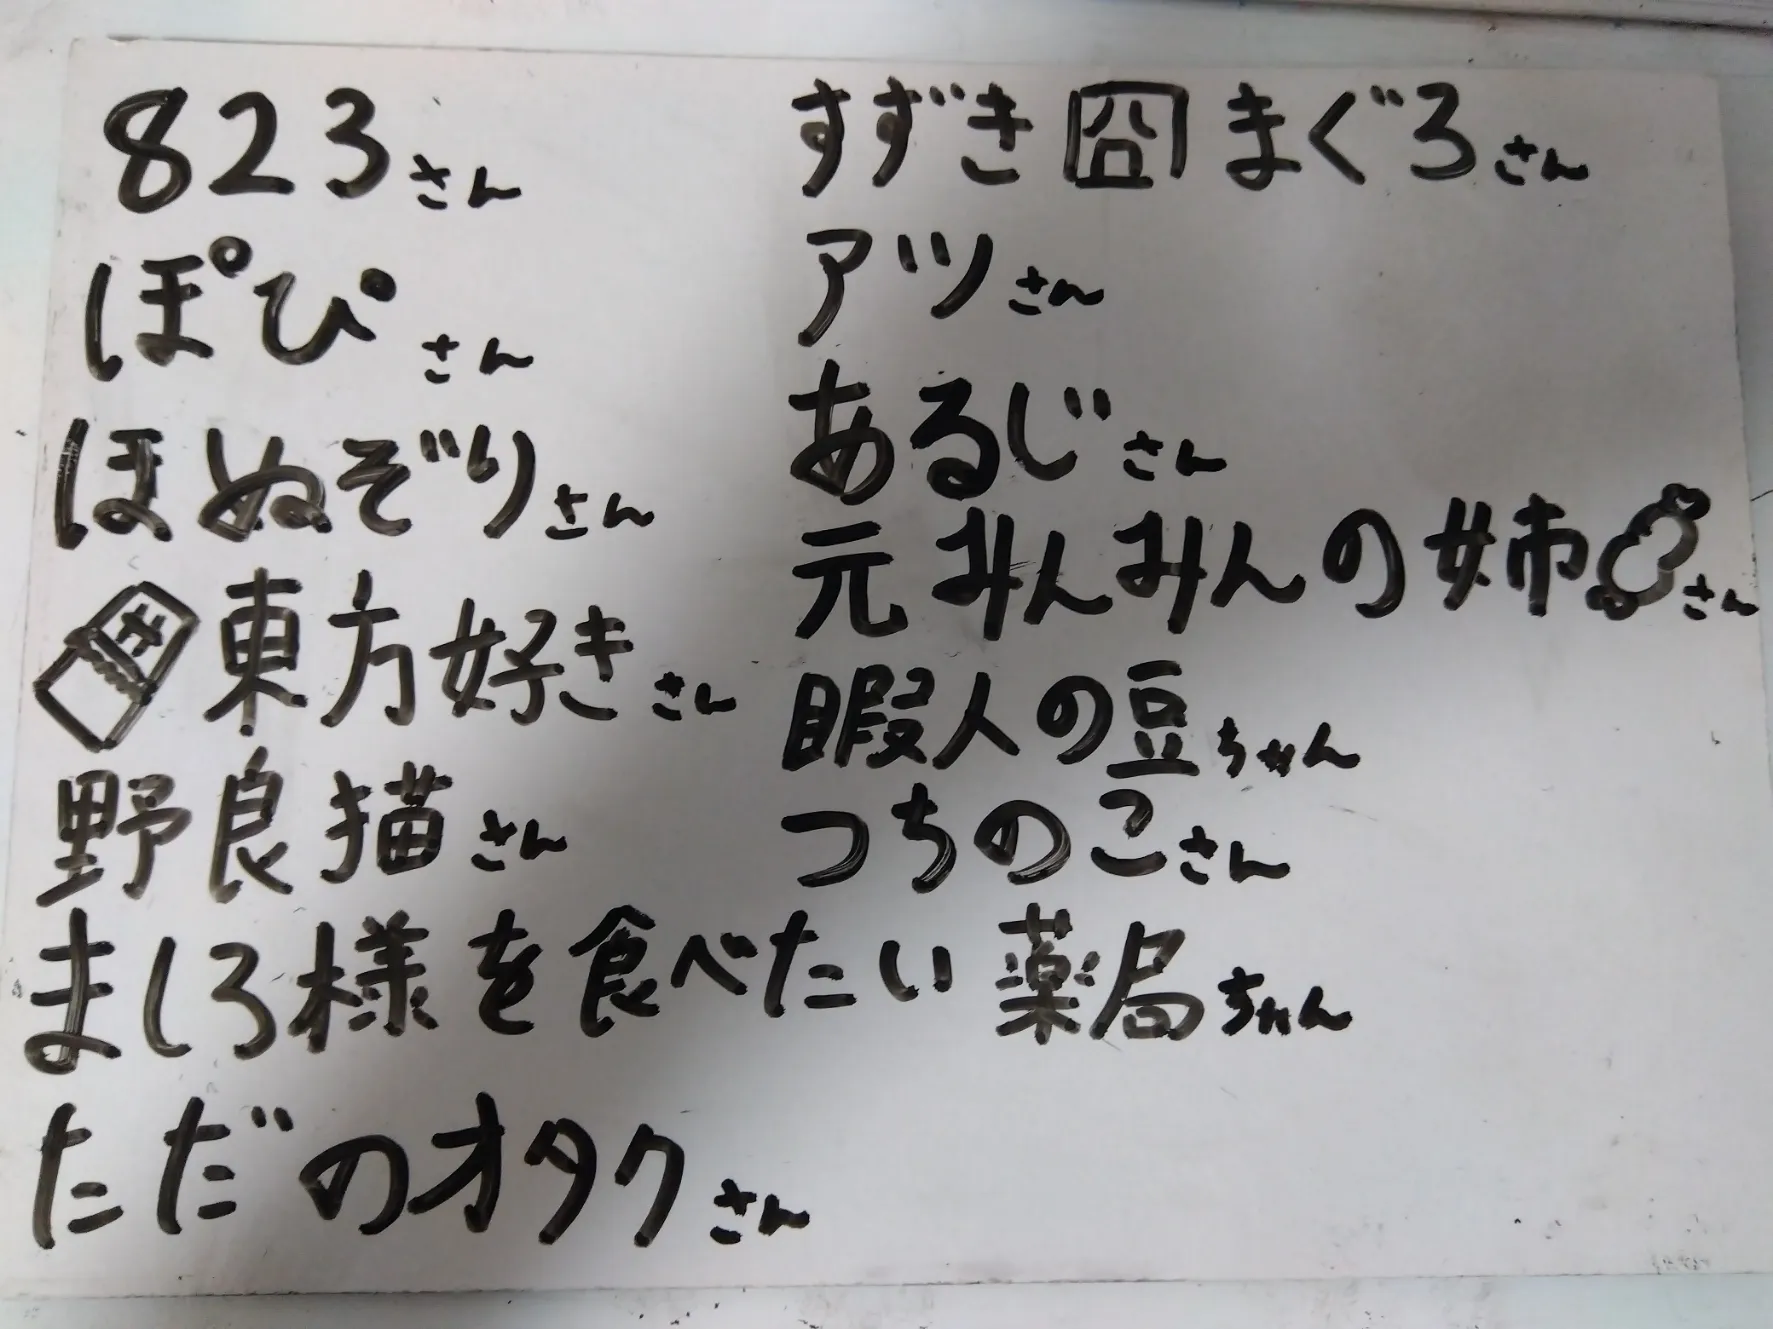 823さん
ぽぴさん
ほぬぞりさん
東方好きさん
野良猫さん
ましろ様を食べたい薬局ちゃん
ただのオタクさん
すずき囧まぐろさん
アツさん
あるじさん
元みんみんの姉さん
暇人の豆ちゃん
つちのこさん